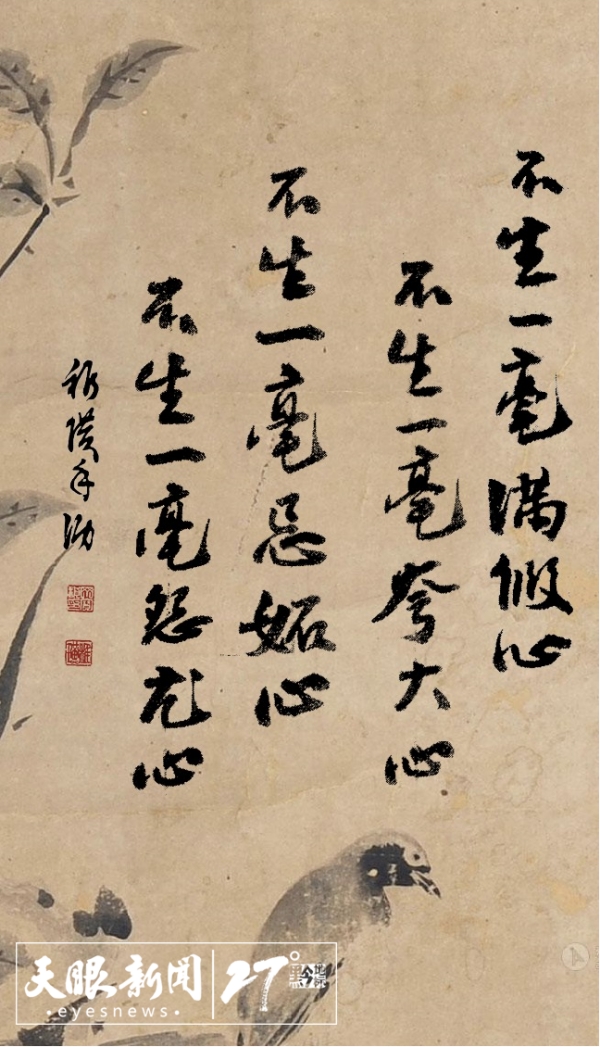 不生一毫满假心
不生一毫夸大心
不生一毫忌妬心
不生一毫怨尤心
手泐
天眼新闻
·eyesnews·
27°